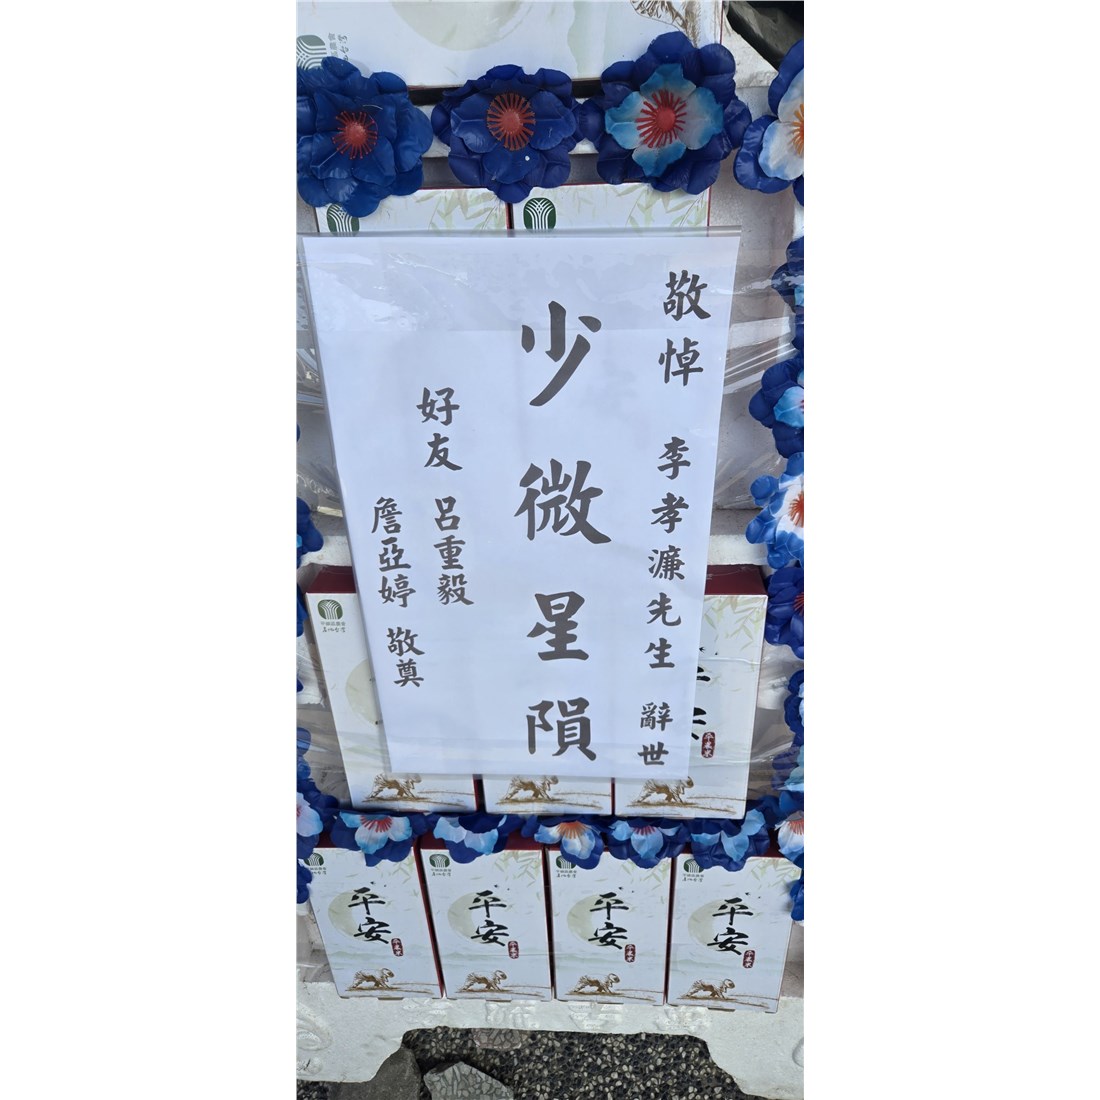 敬悼 李孝濂先生 辭世
少微星隕
好友 呂重毅
詹亞婷 敬奠
平安
平安
平安
平安